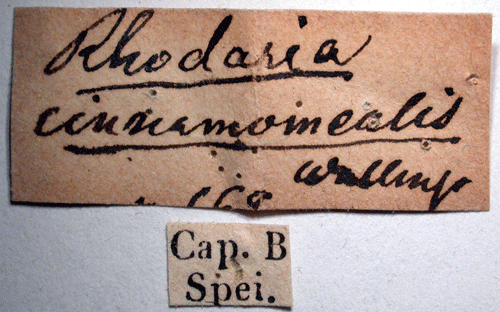 Rhodaria
cinnamomealis
Wallengr
Cap. B
Spei.